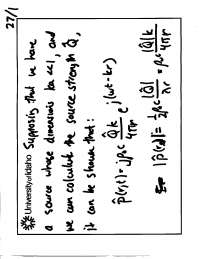 27/1
University of Idaho
Supposing that we have
a source whose dimensions ka<<1, and
we can calculate the source strength Q̂,
it can be shown that:
p̂(r,t) = jρ₀c Q̂k/4πr e^j(ωt-kr)
|p̂(r)| = ½ρ₀c |Q̂|/λr = ρ₀c |Q̂|k/4πr